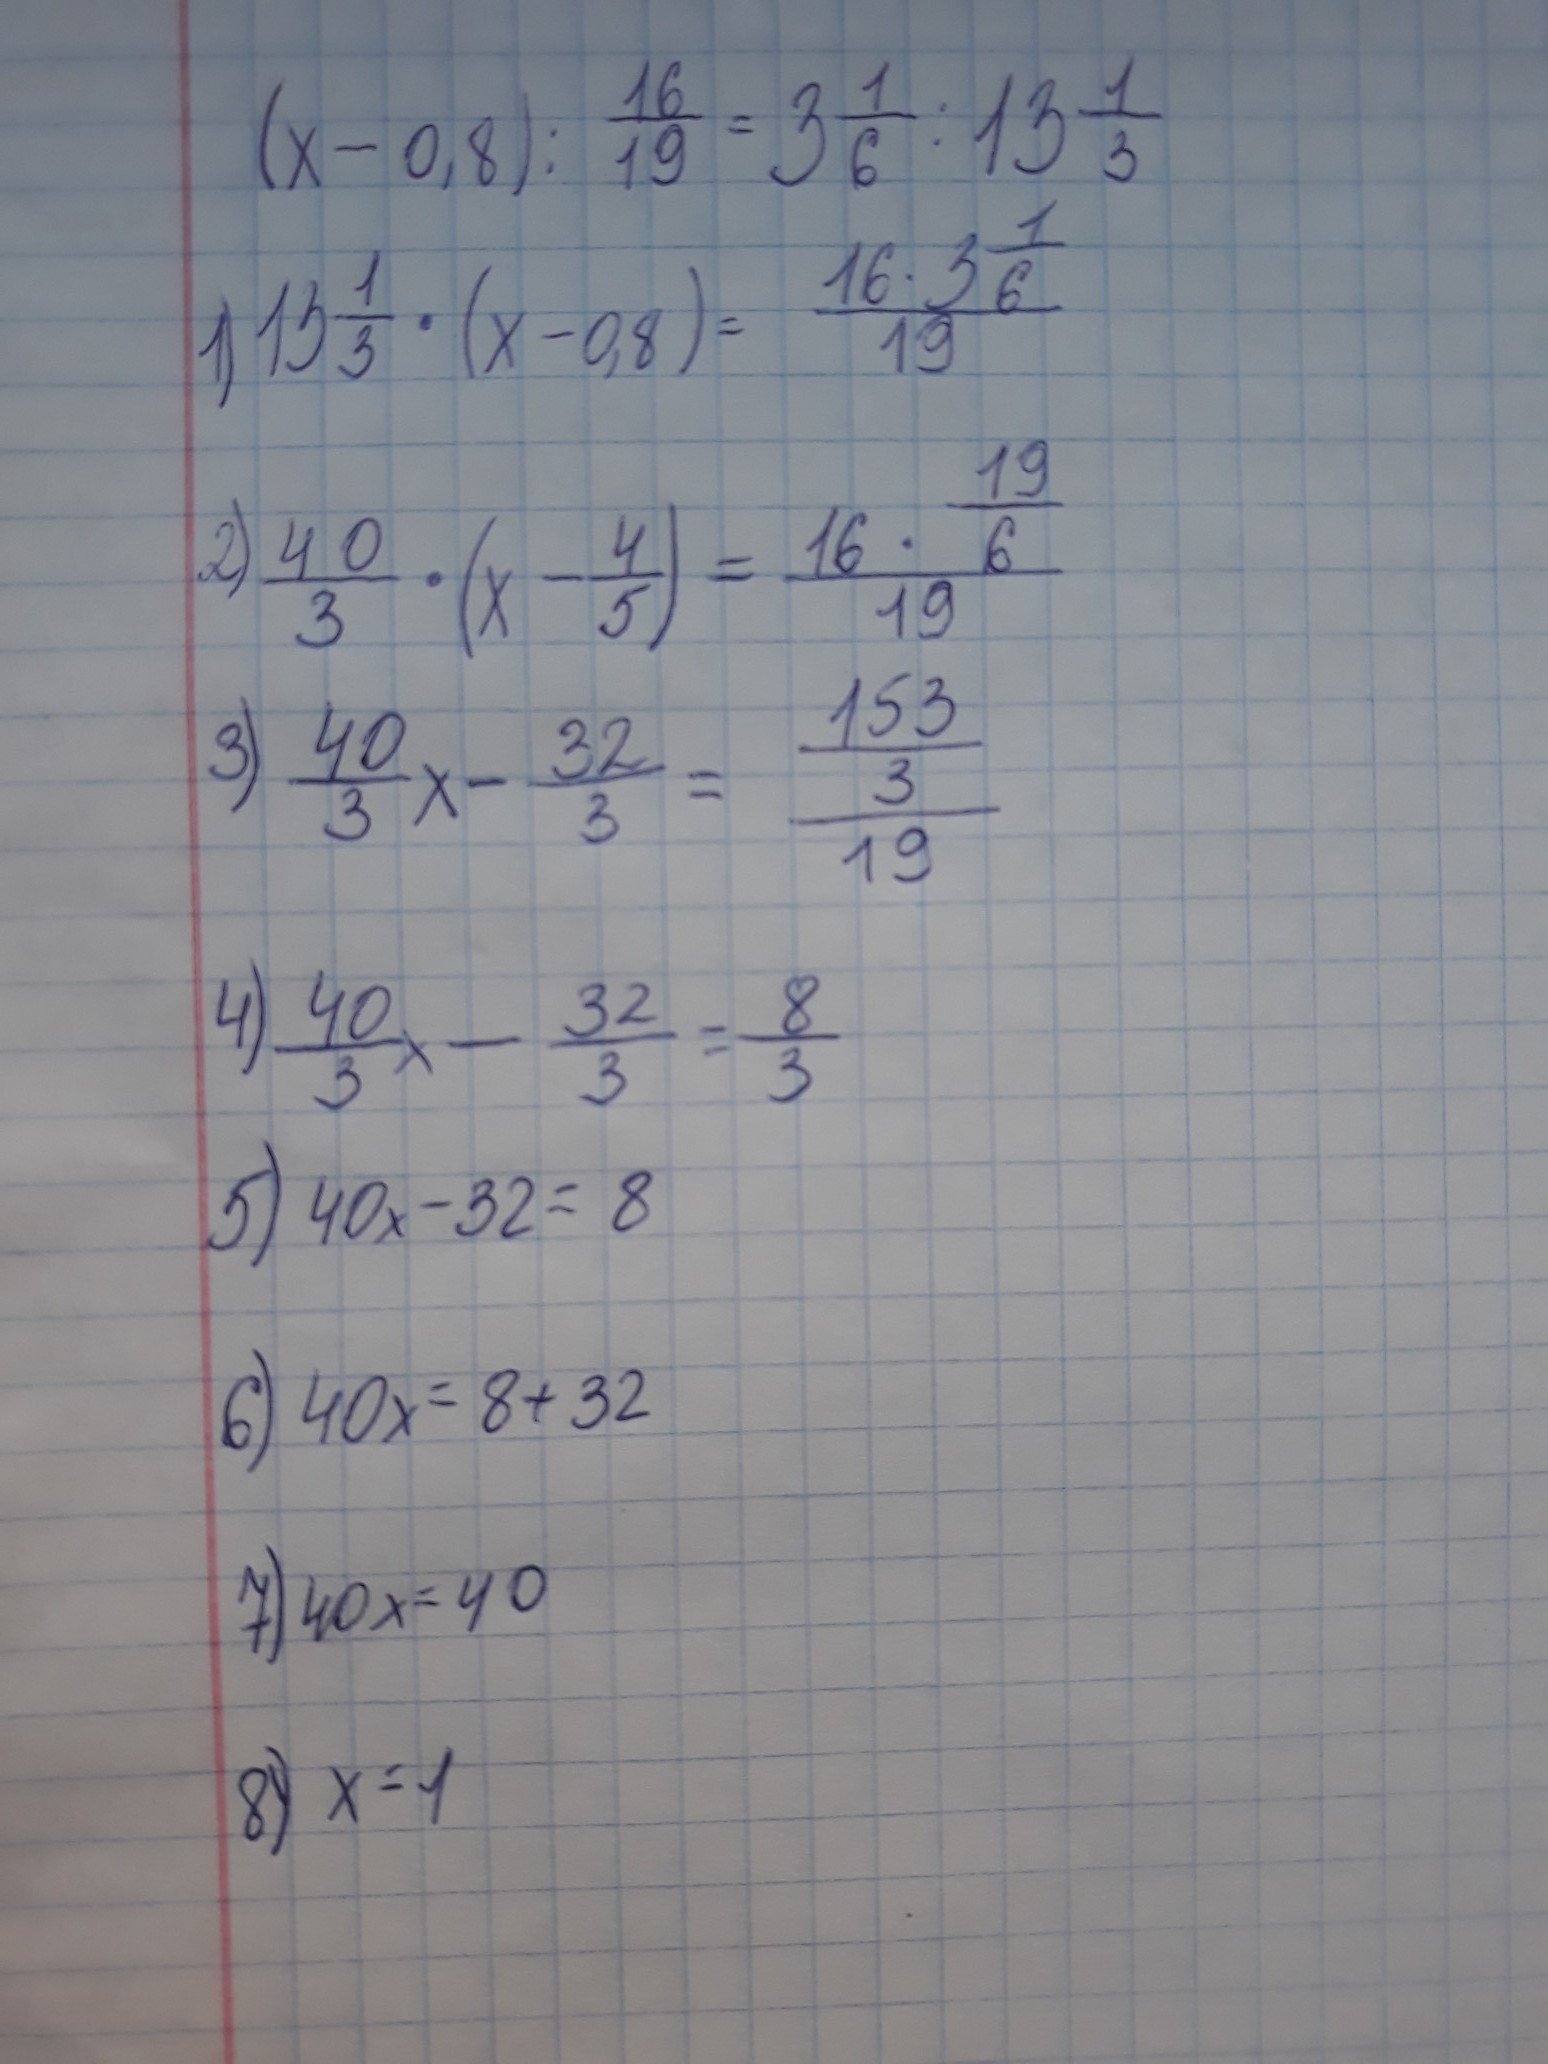 (x - 0,8) : 16/19 = 3 1/6 : 13 1/3
1) 13 1/3 · (x - 0,8) = (16 · 3 1/6)/19
2) 40/3 · (x - 4/5) = (16 · 19/6)/19
3) 40/3 x - 32/3 = (153/3)/19
4) 40/3 x - 32/3 = 8/3
5) 40x - 32 = 8
6) 40x = 8 + 32
7) 40x = 40
8) x = 1